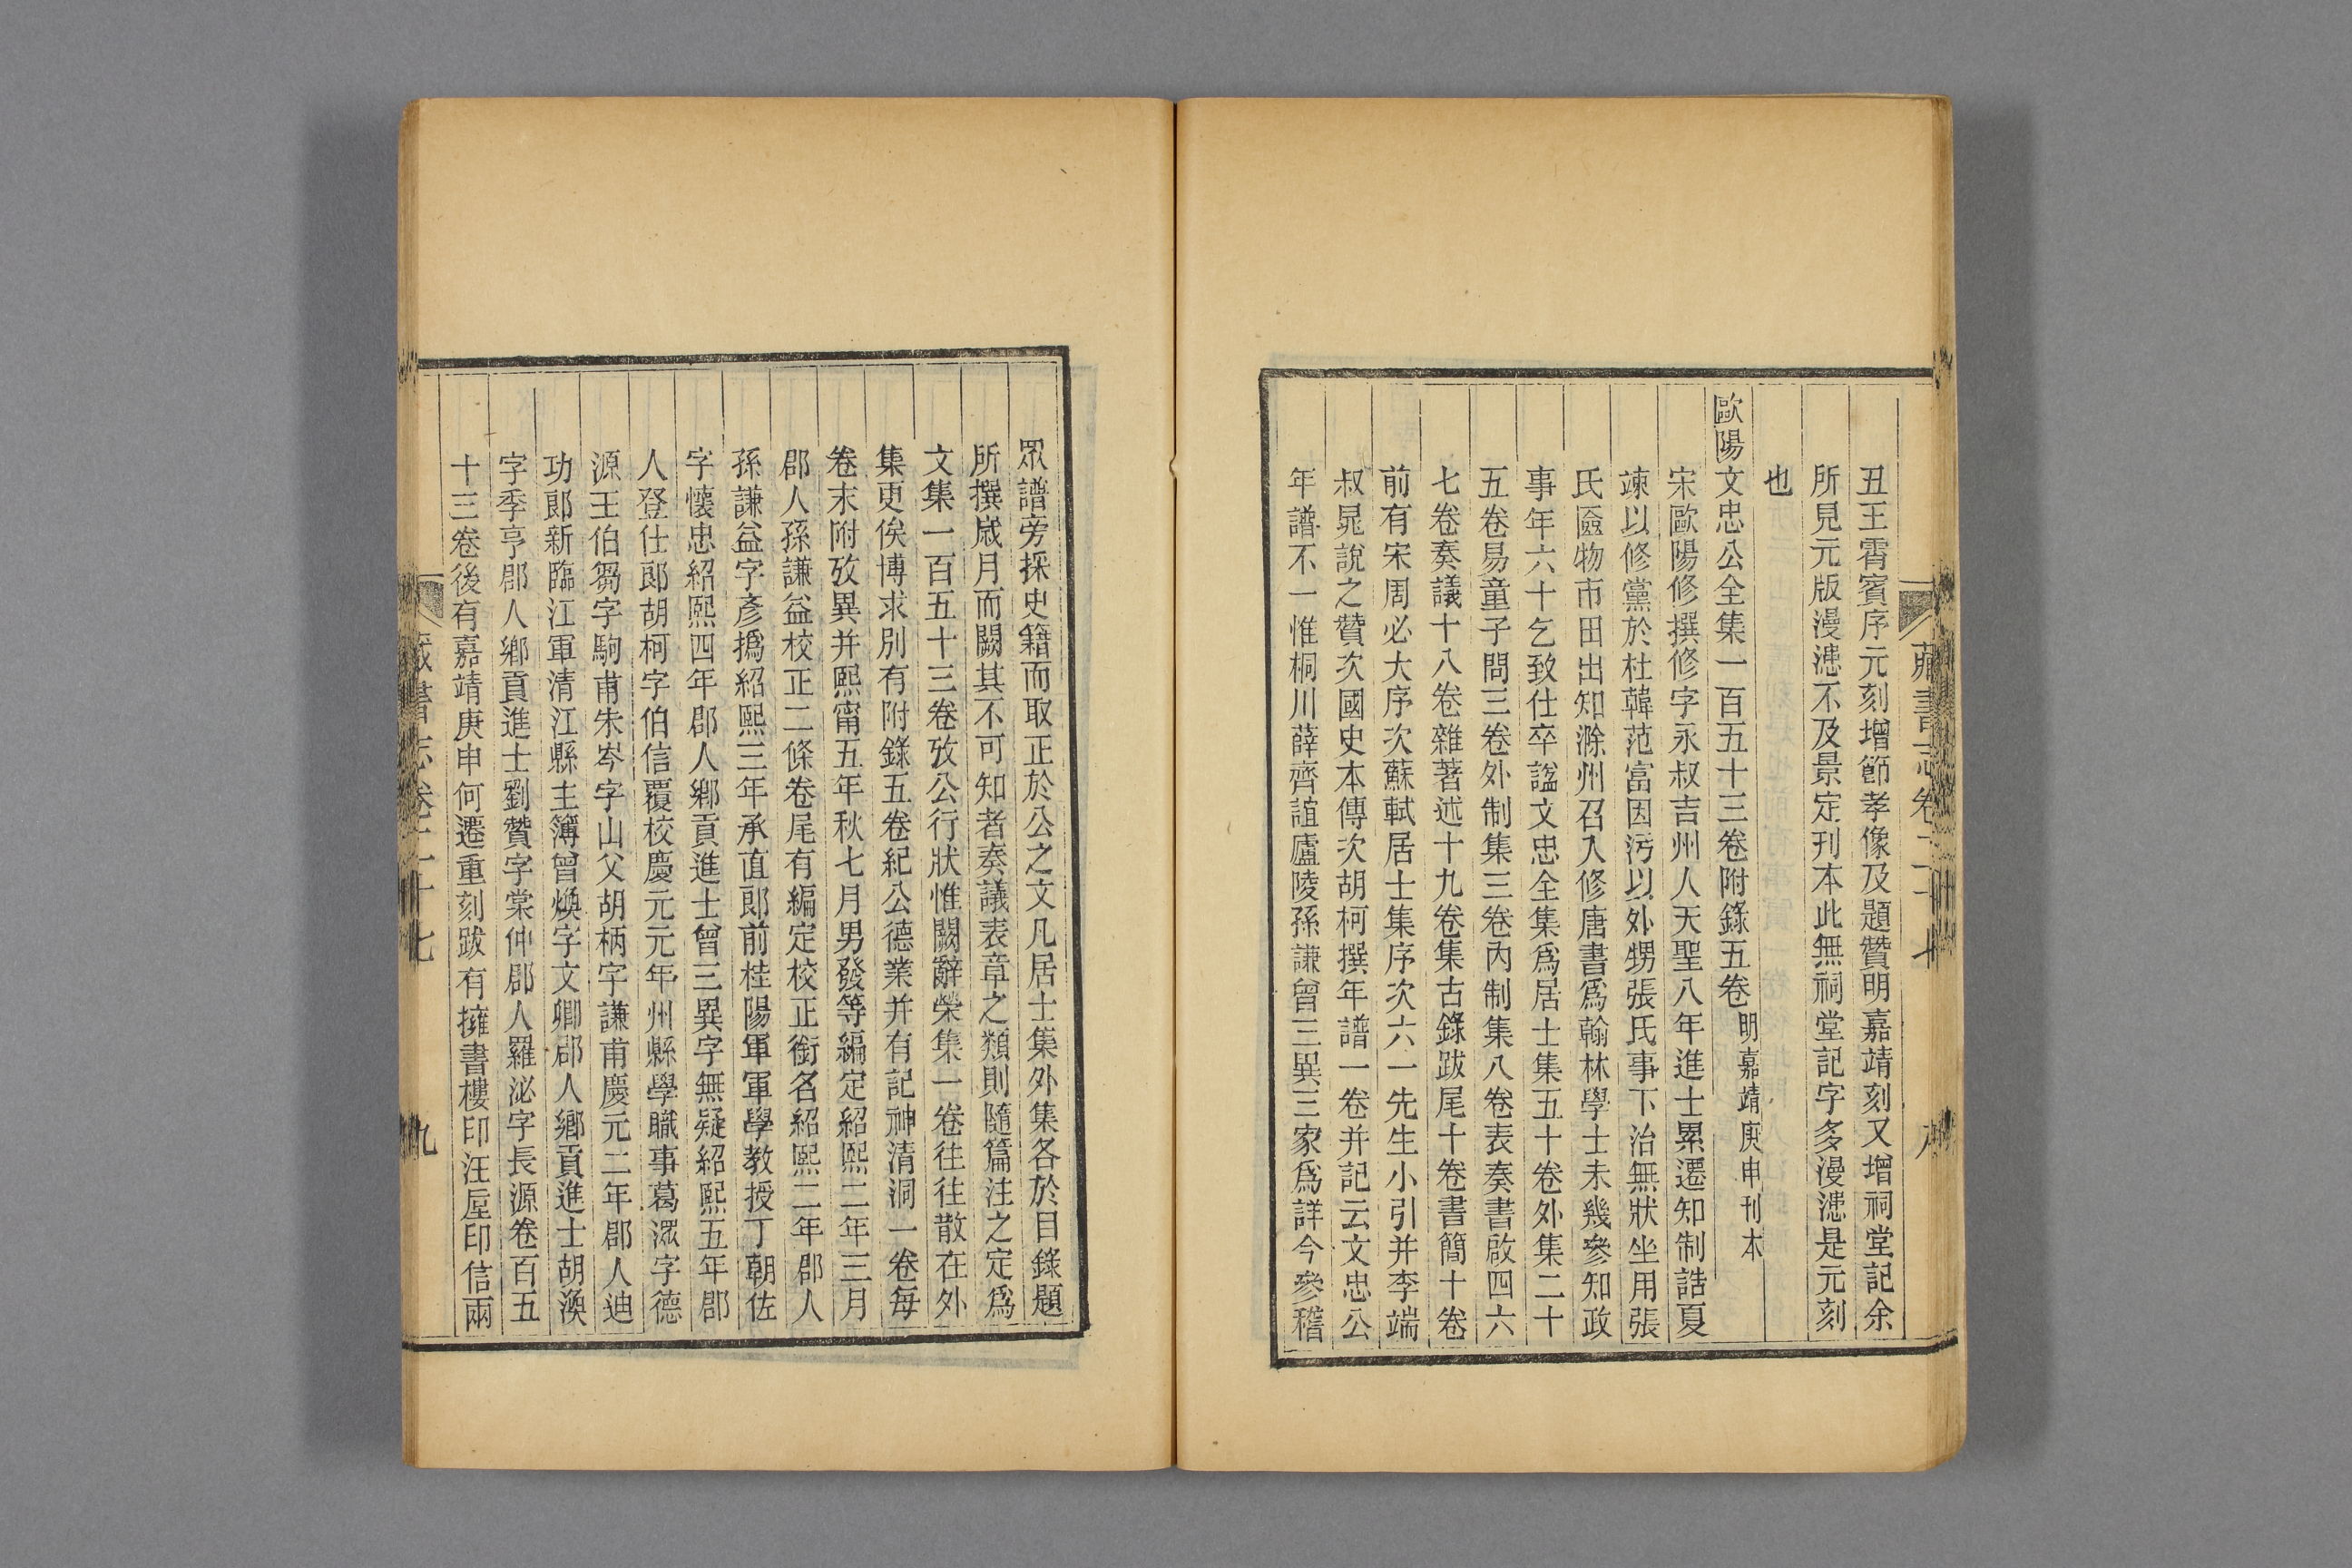 丑王霄賓序元刻增節孝像及題贊明嘉靖刻又增祠堂記余
所見元版漫漶不及景定刊本此無祠堂記字多漫漶是元刻
也
歐陽文忠公全集一百五十三卷附錄五卷明嘉靖庚申刊本
宋歐陽修撰修字永叔吉州人天聖八年進士累遷知制誥夏
竦以修黨於杜韓范富因污以外甥張氏事下治無狀坐用張
氏匳物市田出知滁州召入修唐書爲翰林學士未幾參知政
事年六十乞致仕卒謚文忠全集爲居士集五十卷外集二十
五卷易童子問三卷外制集三卷內制集八卷表奏書啟四六
七卷奏議十八卷雜著述十九卷集古錄跋尾十卷書簡十卷
前有宋周必大序次蘇軾居士集序次六一先生小引并李端
叔晁說之贊次國史本傳次胡柯撰年譜一卷并記云文忠公
年譜不一惟桐川薛齊誼廬陵孫謙曾三異三家爲詳今參稽
眾譜旁採史籍而取正於公之文凡居士集外集各於目錄題
所撰歲月而闕其不可知者奏議表章之類則隨篇注之定爲
文集一百五十三卷攷公行狀惟闕辭榮集一卷往往散在外
集更俟博求別有附錄五卷紀公德業并有記神清洞一卷每
卷末附攷異并熙甯五年秋七月男發等編定紹熙二年三月
郡人孫謙益校正二條卷尾有編定校正銜名紹熙二年郡人
孫謙益字彥撝紹熙三年承直郎前桂陽軍軍學教授丁朝佐
字懷忠紹熙四年郡人鄉貢進士曾三異字無疑紹熙五年郡
人登仕郎胡柯字伯信覆校慶元元年州縣學職事葛潨字德
源王伯芻字駒甫朱岑字山父胡柄字謙甫慶元二年郡人迪
功郎新臨江軍清江縣主簿曾煥字文卿郡人鄉貢進士胡渙
字季亨郡人鄉貢進士劉贊字棠仲郡人羅泌字長源卷百五
十三卷後有嘉靖庚申何遷重刻跋有擁書樓印汪垕印信兩
藏書志卷二十七
九